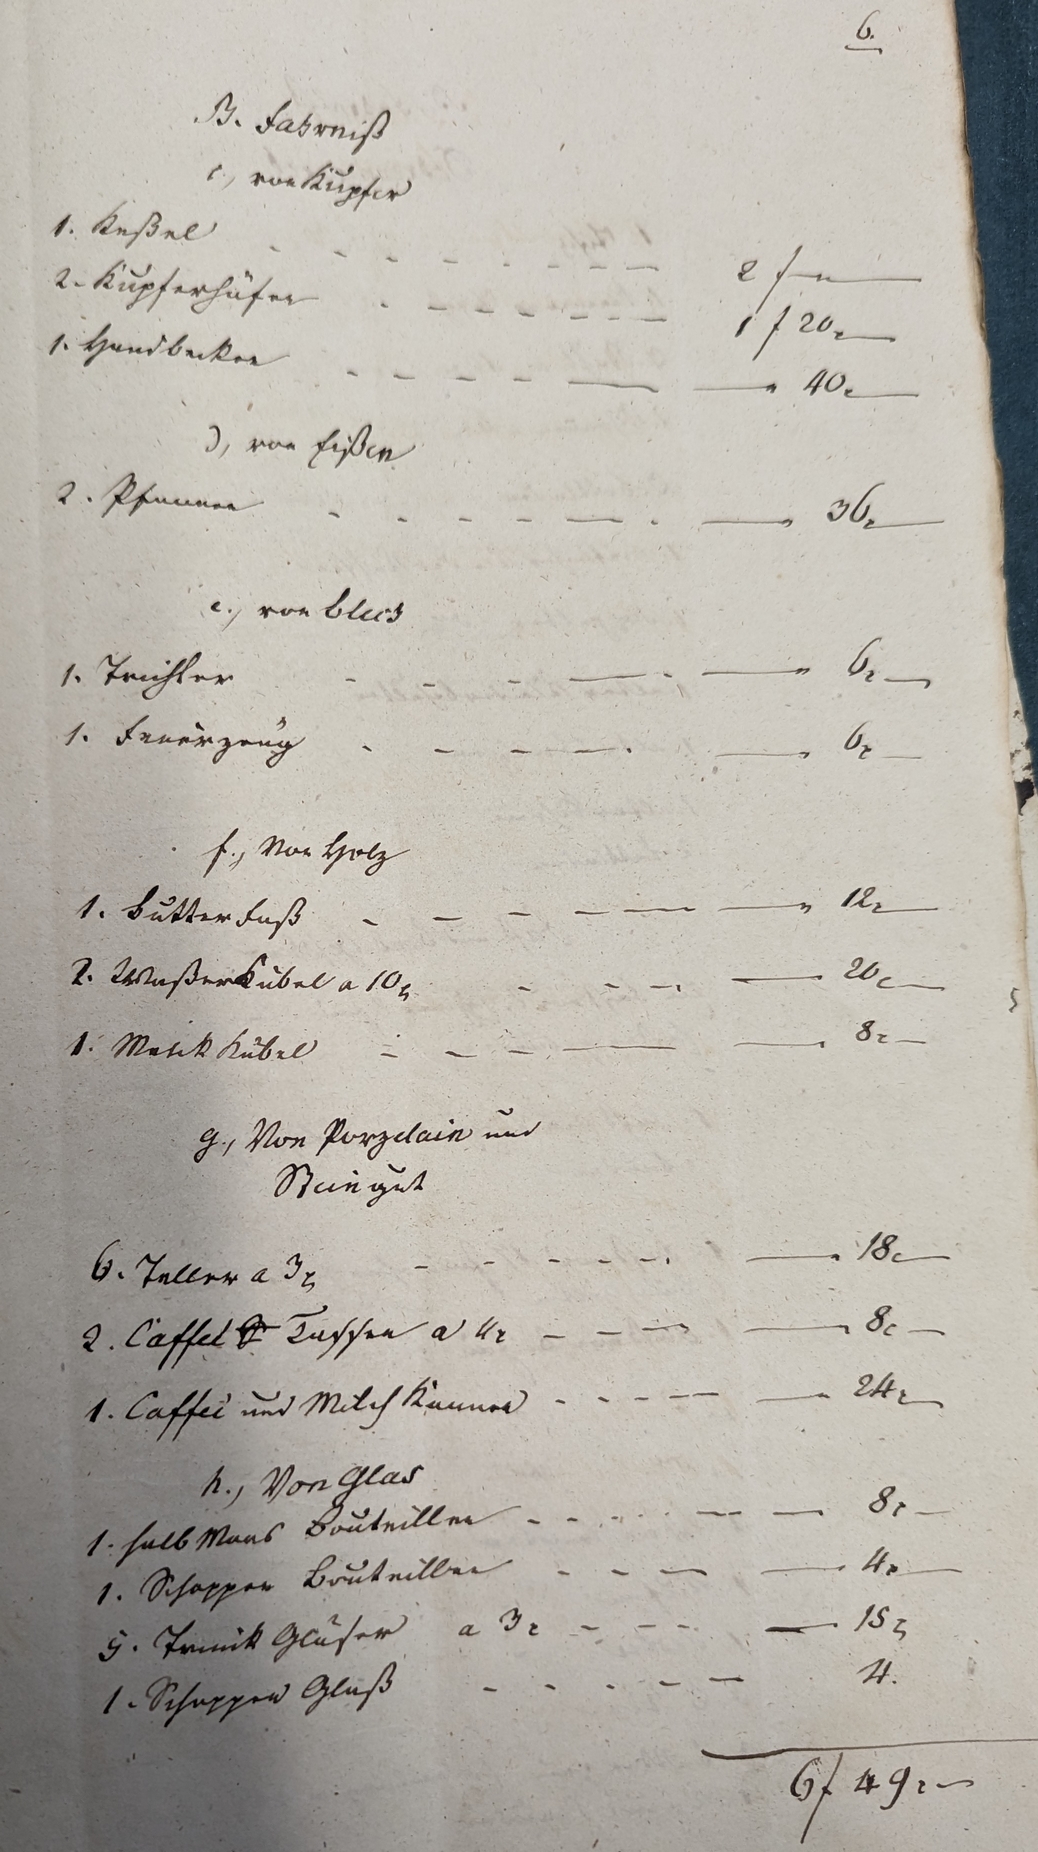 6.
B. Fahrniß
c., von Kupfer
1. Keßel - - - - - - - 2 f "
2. Kupferhäfen - - - - - - 1 f 20 x
1. Handbecken - - - - - " 40 x
d, von Eißen
2. Pfannen - - - - - " 36 x
e., von Blech
1. Trichter - - - - - " 6 x
1. Feuerzeug - - - - " 6 x
f., Von Holz
1. Butter Faß - - - - " 12 x
2. Waßer Kübel a 10 x - - - 20 x
1. Kübel - - - - 8 x
g., Von Porzelain und
Steingut
6. Teller a 3 x - - - - - 18 x
2. Caffee Tassen a 4 x - - - 8 x
1. Caffee und Milch Kannen - - - - " 24 x
h., Von Glas
1. halb Maas Bouteillen - - - - 8 x
1. Schoppen Bouteillen - - - 4 x
5. Trink Gläser a 3 x - - - 15 x
1. Schoppen Glaß - - - - - 4.
6 f 49 x